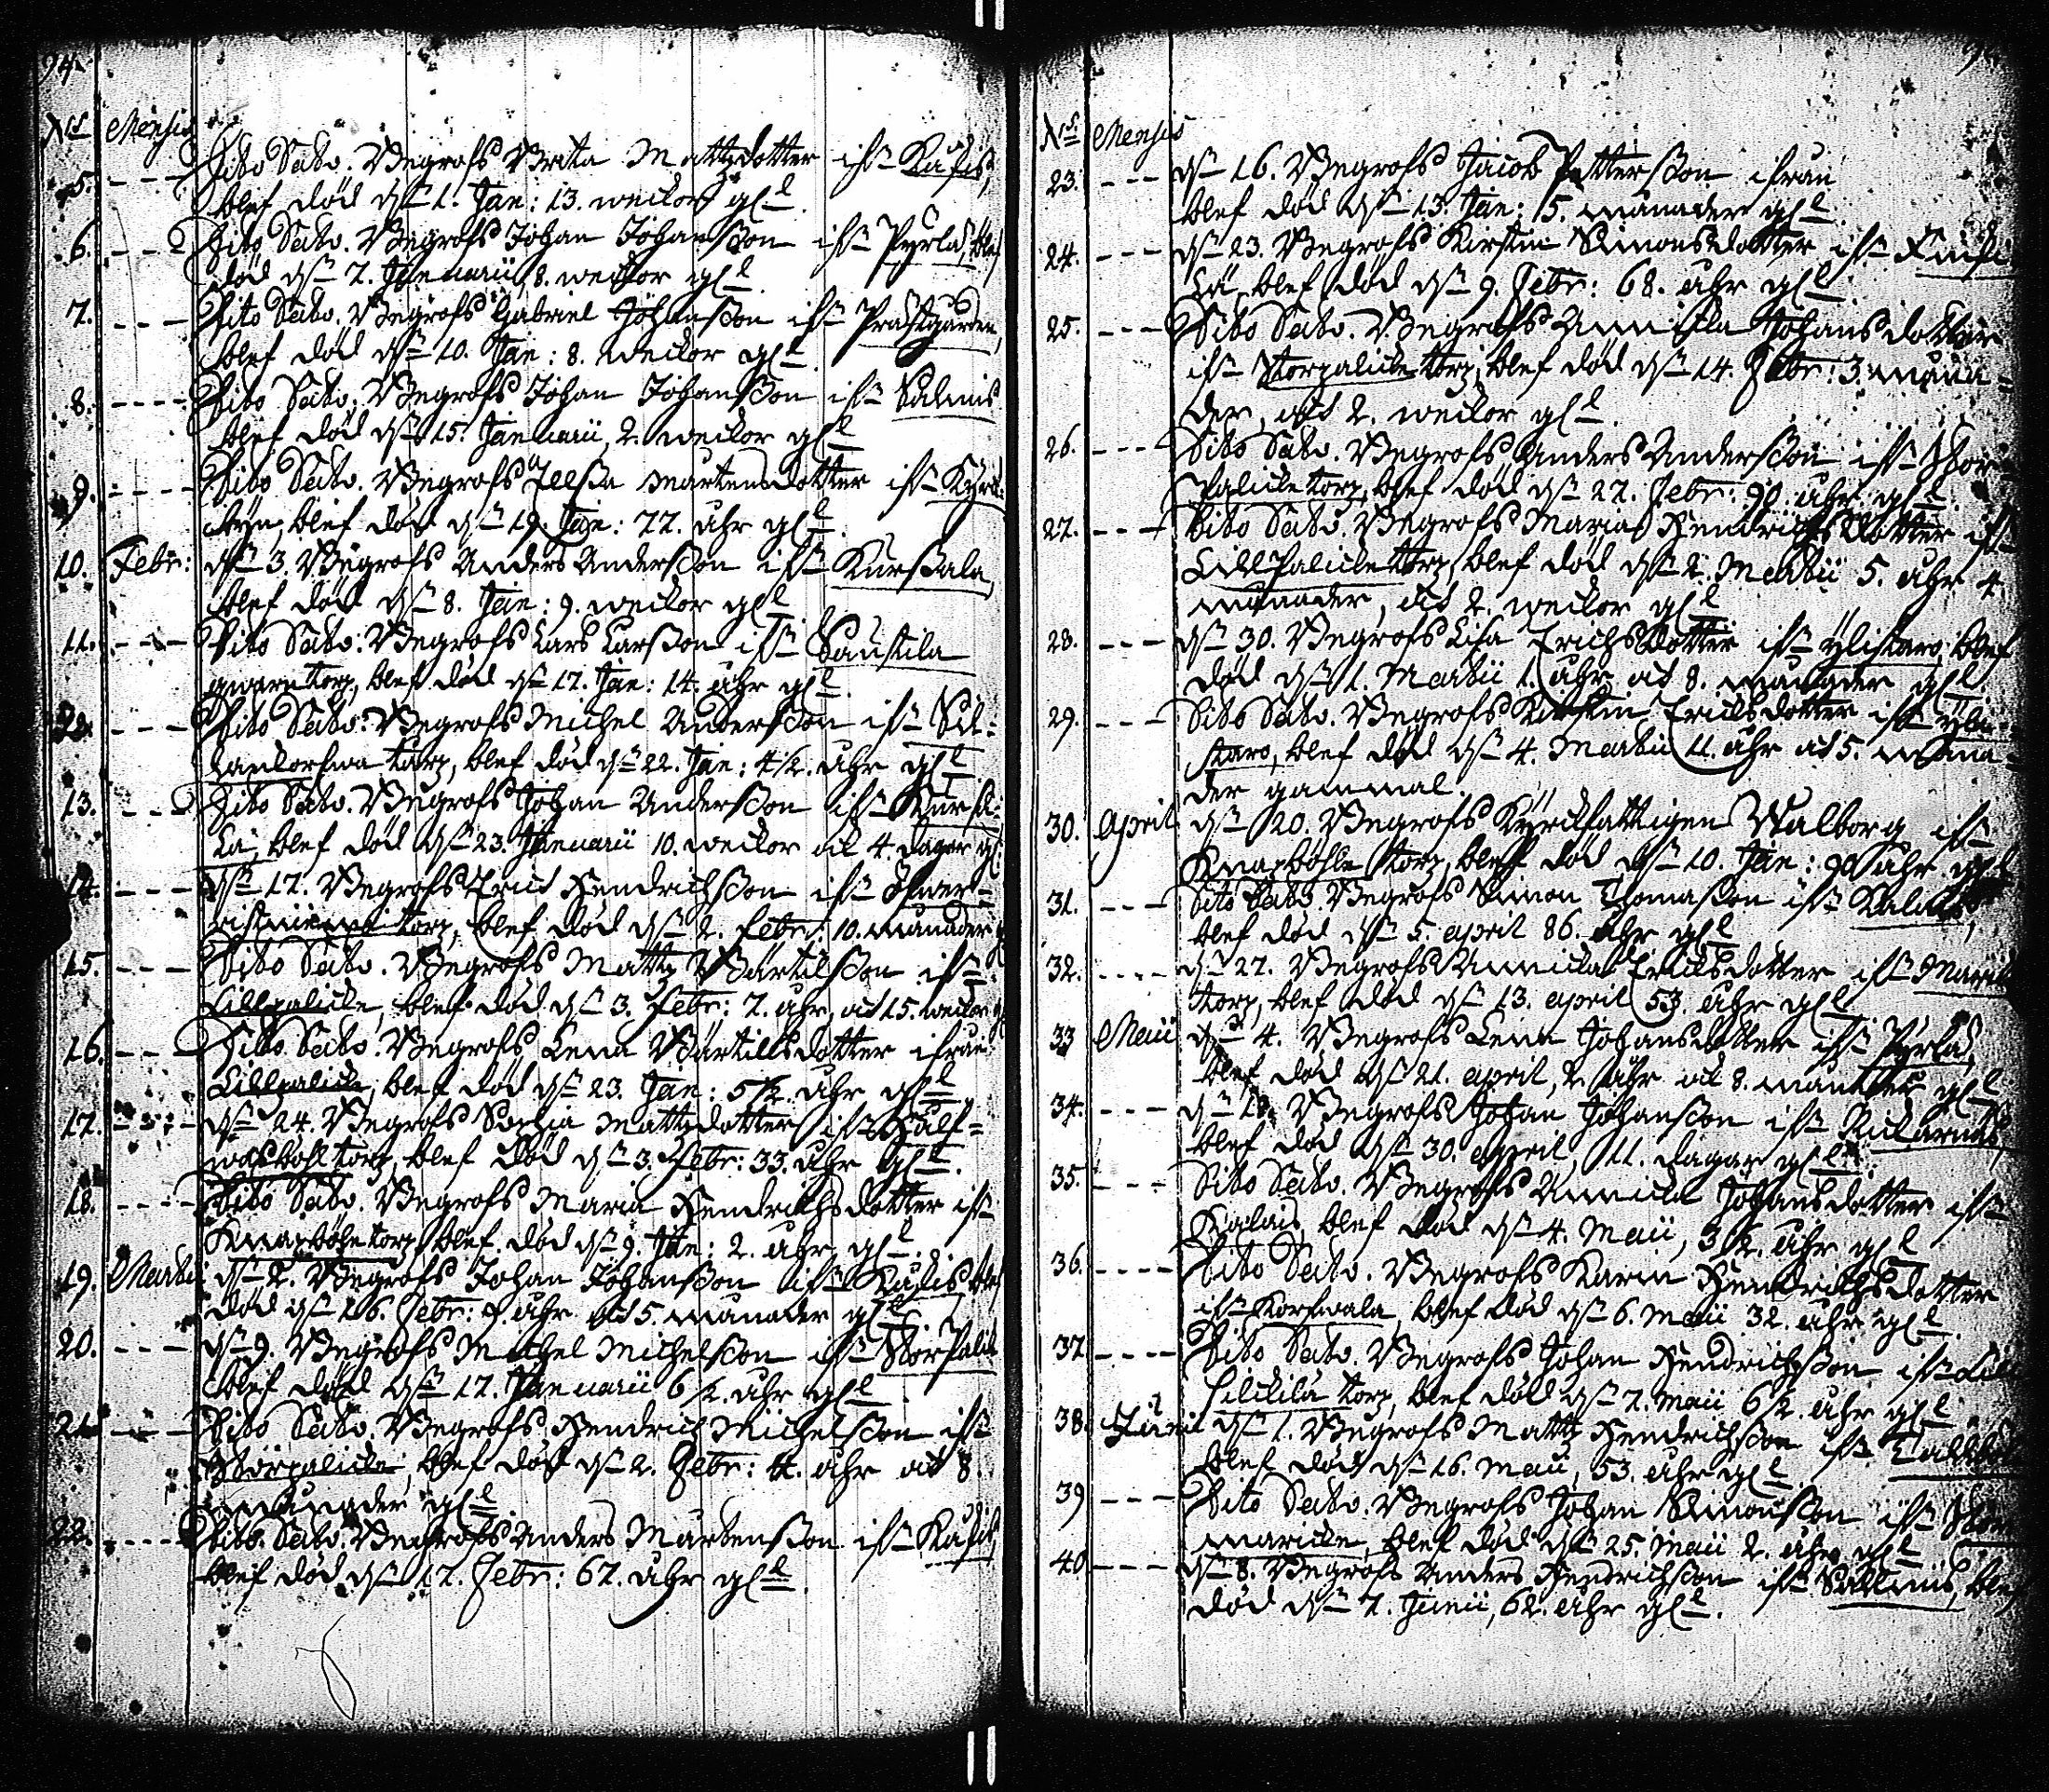 94.
N:s Mensis
5. - - - Dito Dato. Begrofs Brita Mattzdotter ifn Kåfis,
blef död dn 1. Jan: 13. weckor gl
6. - - - Dito Dato. Begrofs Johan Johansson ifn Pyrlå, blef
död dn 7. Januarii, 8. weckor gl
7. - - - Dito Dato. Begrofs Gabriel Johansson ifn Prästgården,
blef död dn 10. Jan: 8. weckor gl
8. - - - Dito Dato. Begrofs Johan Johansson ifn Salmis
blef död dn 15. Januarii, 2. weckor gl
9. - - - Dito Dato. Begrofs Mårtensdotter ifn Kyrck=
byn, blef död dn 19. Jan: 77. åhr gl
10. Febr: dn 3. Begrofs Anders Andersson ifn Kurssala,
blef död dn 8. Jan: 9. weckor gl
11. - - - Dito Dato. Begrofs Lars Larsson ifn Saustila
qwarntorp, blef död dn 17. Jan: 14. åhr gl
12. - - - Dito Dato. Begrofs Michel Andersson ifn
torp, blef död dn 22. Jan: 4 1/2. åhr gl
13. - - - Dito Dato. Begrofs Johan Andersson ifn Kursa=
la, blef död dn 23. Januarii 10. weckor och 4. dagar gl
14. - - - dn 17. Begrofs Erich Hendrichsson ifn Öfwer=
torp, blef död dn 2. Febr: 10. månader gl
15. - - - Dito Dato. Begrofs Mattz Bärtilsson ifn
Lillpalicke, blef död dn 3. Febr: 7. åhr, och 15. weckor gl
16. - - - Dito Dato. Begrofs Lena Bärtillsdotter ifrån
Lillpalicke, blef död dn 23. Jan: 5 1/2. åhr gl
17. - - - dn 24. Begrofs Sophia Mattzdotter ifn Half=
torp, blef död dn 3. Febr: 33. åhr gl
18. - - - Dito Dato. Begrofs Maria Hendrichsdotter ifn
Knapböhle torp blef död dn 9. Jan: 2. åhr gl
19. Martii dn 2. Begrofs Johan Johansson ifn Kåfis blef
död dn 16. Febr: 9. åhr och 5. månader gl
20. - - - dn 9. Begrofs Michel Michelsson ifn Storpalick
blef död dn 17. Januarii 6 1/2. åhr gl
21. - - - Dito Dato. Begrofs Hendrich Michelsson ifn
Storpalicke, blef död dn 2. Febr: 4. åhr och 8.
månader gl
22. - - - Dito. Dato. Begrofs Anders Mårtensson ifn Kåfis,
blef död dn 17. Febr: 67. åhr gl
N:s Mensis
23. - - - dn 16. Begrofs Jacob Pettersson ifrån
blef död dn 13. Jan: 5. månader gl
24. - - - dn 23. Begrofs Kirstin Simonsdotter ifn
blef död dn 9. Febr: 68. åhr gl
25. - - - Dito Dato. Begrofs Annicka Johansdotter
ifn Storpalicke torp, blef död dn 14. Febr: 3. måna=
der, och 2. weckor gl
26. - - - Dito Dato. Begrofs Anders Andersson ifn Stor=
palicke torp, blef död dn 27. Febr: 90. åhr gl
27. - - - Dito Dato. Begrofs Maria Hendrichsdotter ifn
Lillpalicke torp, blef död dn 2. Martii 5. åhr 4.
månader, och 2. weckor gl
28. - - - dn 30. Begrofs Lisa Erichsdotter ifn Ylistaro, blef
död dn 1. Martii 1. åhr och 8. månader gl
29. - - - Dito Dato. Begrofs Kirstin Ericksdotter ifn Yli=
staro, blef död dn 4. Martii 11. åhr och 5. måna=
der gammal.
30. April dn 20. Begrofs Kyrckfattigen Walborg ifn
Knapböhle torp, blef död dn 10. Jan: 90 åhr gl
31. - - - Dito Dato. Begrofs Simon Thomasson ifn
blef död dn 5. april 86. åhr gl
32. - - - dn 27. Begrofs Annicka Ericksdotter ifn
torp, blef död dn 13. april 53. åhr gl
33 Maii dn 4. Begrofs Lena Johansdotter ifn Pyrlå,
blef död dn 21. april, 2. åhr och 8. månader gl
34. - - - dn Begrofs Johan Johansson ifn
blef död dn 30. april, 11. dagar gl
35. - - - Dito Dato. Begrofs Annicka Johansdotter ifn
blef död dn 4. Maii, 3 1/2. åhr gl
36. - - - Dito Dato. Begrofs Karin Hendrichsdotter
ifn Korfwala, blef död dn 6. Maii 32. åhr gl
37. - - - Dito Dato. Begrofs Johan Hendrichsson ifn
torp, blef död dn 7. Maii 6 1/2. åhr gl
38. Junii dn 1. Begrofs Mattz Hendrichsson ifn
blef död dn 16. Maii, 53. åhr gl
39 - - - Dito Dato. Begrofs Johan Simonsson ifn
blef död dn 25. Maii 2. åhr gl
40 - - - dn 8. Begrofs Anders Hendrichsson ifn Salmis, blef
död dn 7. Junii, 62. åhr gl